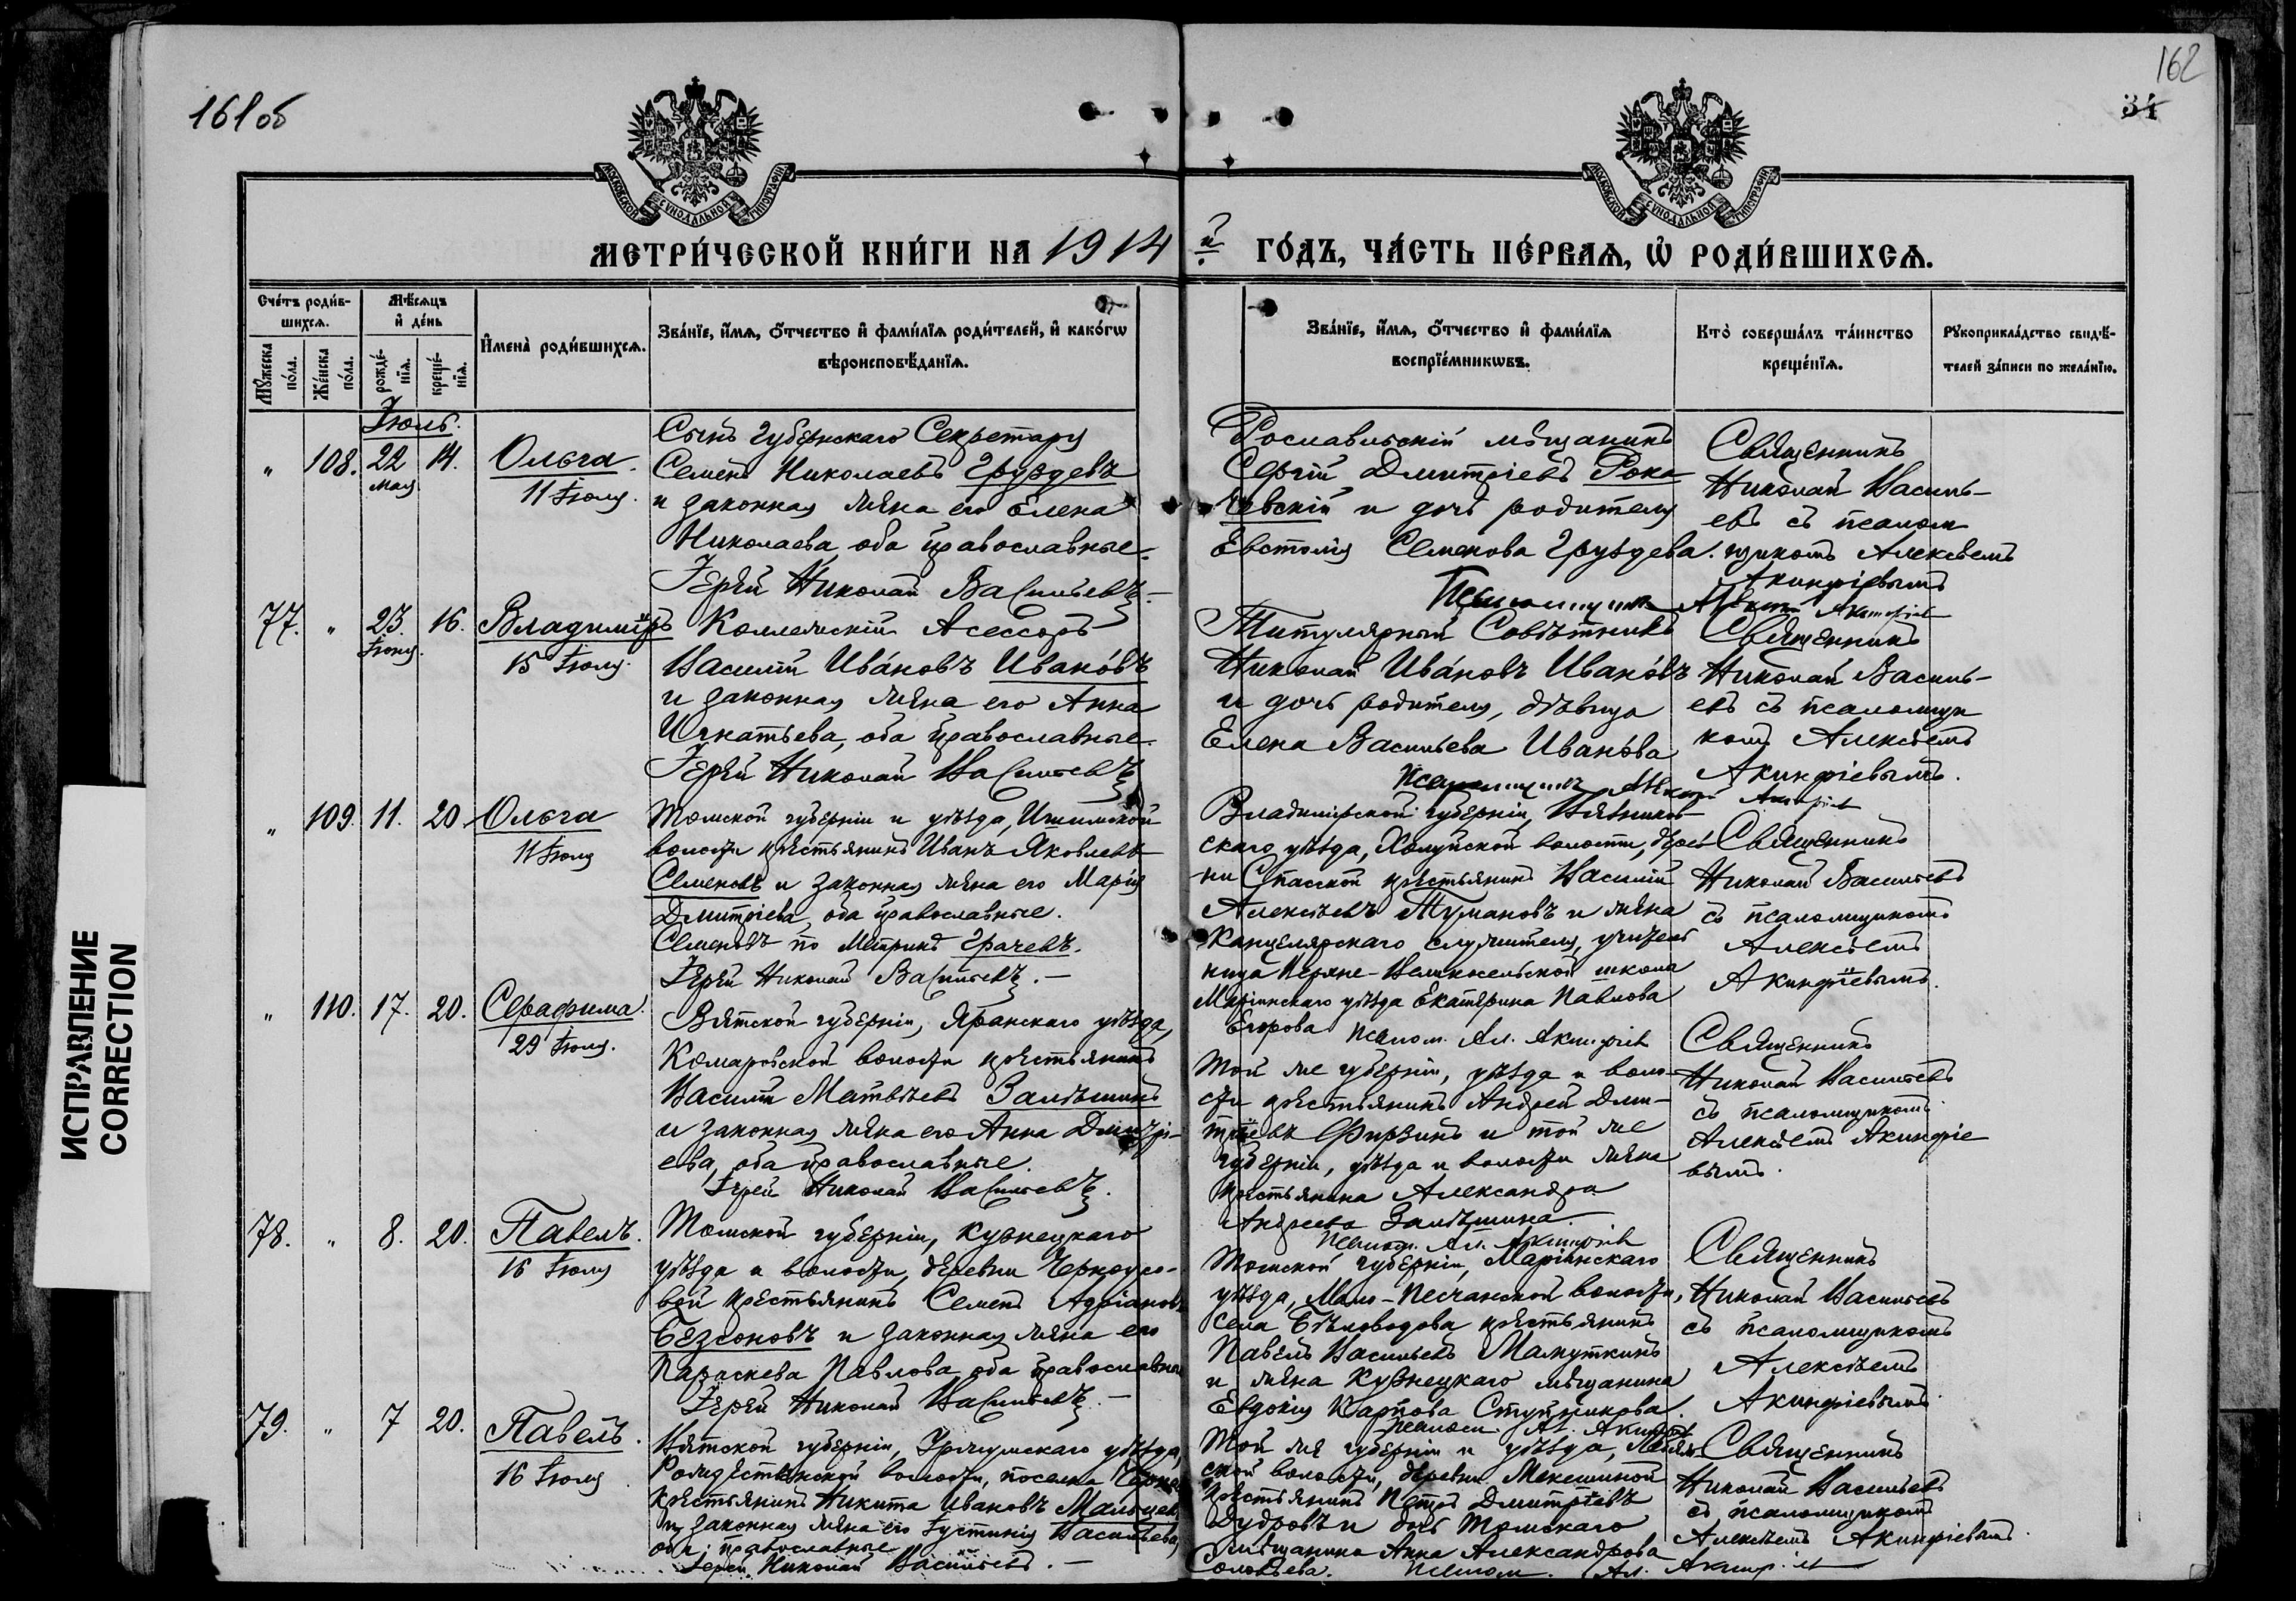 161об
162
34
МОСКОВСКОЙ СУНОДАЛЬНОЙ ТИПОГРАФІИ
МОСКОВСКОЙ СУНОДАЛЬНОЙ ТИПОГРАФІИ
МЕТРИ́ЧЕСКОЙ КНИ́ГИ НА 1914 й ГО́ДЪ, ЧА́СТЬ ПЕ́РВАЯ, Ѡ РОДИ́ВШИХСЯ.
Сче́тъ роди́в-
шихся.
Мѣ́сяцъ
и҆ де́нь
Му́жеска
по́ла.
Же́нска
по́ла.
рожде́-
нїя.
креще́-
нїя.
И҆мена̀ роди́вшихся.
Зва́нїе, и҆́мя, о҆́тчество и҆ фами́лїя роди́телей, и҆ како́гѡ
вѣроисповѣ́данїя.
Зва́нїе, и҆́мя, о҆́тчество и҆ фами́лїя
воспрїе́мникѡвъ.
Кто̀ соверша́лъ та́инство
креще́нїя.
Рꙋкоприкла́дство свидѣ́-
телей за́писи по жела́нїю.
Іюль.
" 108. 22 мая 14. Ольга.
11 Іюля.
Сынъ Губернскаго Секретаря
Семенъ Николаевъ Груздевъ
и законная жена его Елена
Николаева, оба православные.
Іерей Николай Васильевъ.
Рославльскій мѣщанинъ
Сергій Дмитріевъ Рока-
чевскій и дочь родителя
Евстолія Семенова Груздева.
Псаломщикъ Алексѣй Акинфіев
Священникъ
Николай Василь-
евъ съ псалом
щикомъ Алексѣемъ
Акинфіевымъ
77. " 23. Іюня. 16. Владиміръ
15 Іюля.
Коллежскій Асессоръ
Василій Ива́новъ Ивано́въ
и законная жена его Анна
Игнатьева, оба православные.
Іерей Николай Васильевъ
Титулярный Совѣтникъ
Николай Ива́новъ Ивано́въ
и дочь родителя, дѣвица
Елена Васильева Ивано́ва
Псаломщикъ Алексѣй Акинфіев
Священникъ
Николай Василь-
евъ съ псаломщи
комъ Алексѣемъ
Акинфіевымъ.
" 109. 11. 20. Ольга
11 Іюля
Томской губерніи и уѣзда, Ишимской
волости крестьянинъ Иванъ Яковлевъ
Семеновъ и законная жена его Марія
Дмитріева, оба православные.
Семеновъ по Метрикѣ Грачевъ.
Іерей Николай Васильевъ. —
Владимірской губерніи, Вязников-
скаго уѣзда, Холуйской волости, дерев-
ни Спасской крестьянинъ Василій
Алексѣевъ Тумановъ и жена
Канцелярскаго служителя, учитель
ница Великосельской школы
Маріинскаго уѣзда Екатерина Павлова
Егорова Псалом. Ал. Акинфіев
Священникъ
Николай Васильевъ
съ псаломщикомъ
Алексѣемъ
Акинфіевымъ.
" 110. 17. 20. Серафима.
29 Іюля.
Вятской губерніи, Яранскаго уѣзда,
Комаровской волости крестьянинъ
Василій Матвѣевъ Залѣшинъ
и законная жена его Анна Дмитрі-
ева, оба православные.
Іерей Николай Васильевъ.
Той же губерніи, уѣзда и воло-
сти крестьянинъ Андрей Дми-
тріевъ Фирзинъ и той же
губерніи, уѣзда и волости жена
крестьянина Александра
Андреева Залѣшина.
Псалом. Ал. Акинфіев
Священникъ
Николай Васильевъ
съ псаломщикомъ
Алексѣемъ Акинфіе
вымъ.
78. " 8. 20. Павелъ.
16 Іюля
Томской губерніи, Кузнецкаго
уѣзда и волости, деревни Черноусо-
вой крестьянинъ Семенъ Адріановъ
Безсоновъ и законная жена его
Параскева Павлова, оба православны
Іерей Николай Васильевъ. —
Томской губерніи, Маріинскаго
уѣзда, Мало-Песчанской волости,
села Бѣловодова крестьянинъ
Павелъ Васильевъ Мамуткинъ
и жена Кузнецкаго мѣщанина
Евдокія Карпова Ступникова.
Псалом. Ал. Акинфіев
Священникъ
Николай Васильевъ
съ псаломщикомъ
Алексѣемъ
Акинфіевымъ.
79. " 7 20. Павелъ.
16 Іюля
Вятской губерніи, Уржумскаго уѣзда,
Рождественской волости, поселка
крестьянинъ Никита Ивановъ Мальцевъ
и законная жена его Іустинія Васильева,
оба православные
Іерей Николай Васильевъ. —
Той же губерніи и уѣзда,
ской волости, деревни Мокешиной
крестьянинъ Петръ Дмитріевъ
Дудровъ и дочь Томскаго
мѣщанина Анна Александрова
Соловьева. Псалом. Ал. Акинфіев
Священникъ
Николай Васильевъ
съ псаломщикомъ
Алексѣемъ Акинфіевымъ.
ИСПРАВЛЕНИЕ
CORRECTION